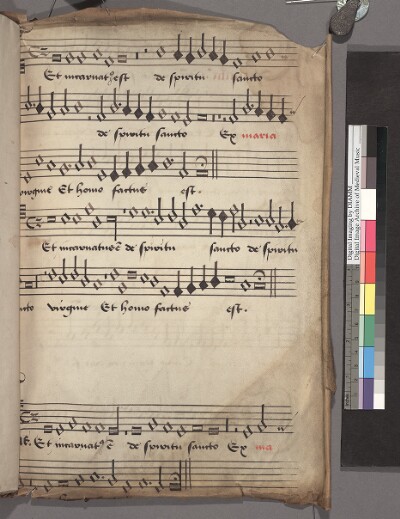 Et incarnatꝰ est de spiritu sancto
de spiritu sancto Ex maria
virgine Et homo factus est.
Et incarnatus ē de spiritu sancto de spiritu
virgine Et homo factus est.
Et incarnatꝰ ē de spiritu sancto Ex ma
Digital Imaging by DIAMM
Digital Image Archive of Medieval Music